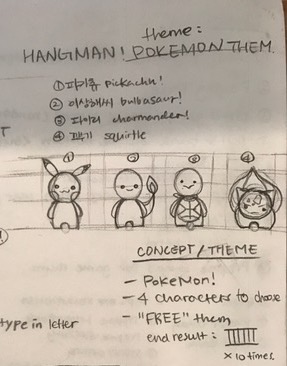 theme:
HANGMAN! POKEMON THEM
① 피카츄 pickachu!
② 이상해씨 bulbasaur!
③ 파이리 charmander!
④ 꼬부기 squirtle
T
① ② ③ ④
CONCEPT/THEME
- POKEMON!
- 4 characters to choose
- "FREE" them
type in letter
end result:
x 10 times